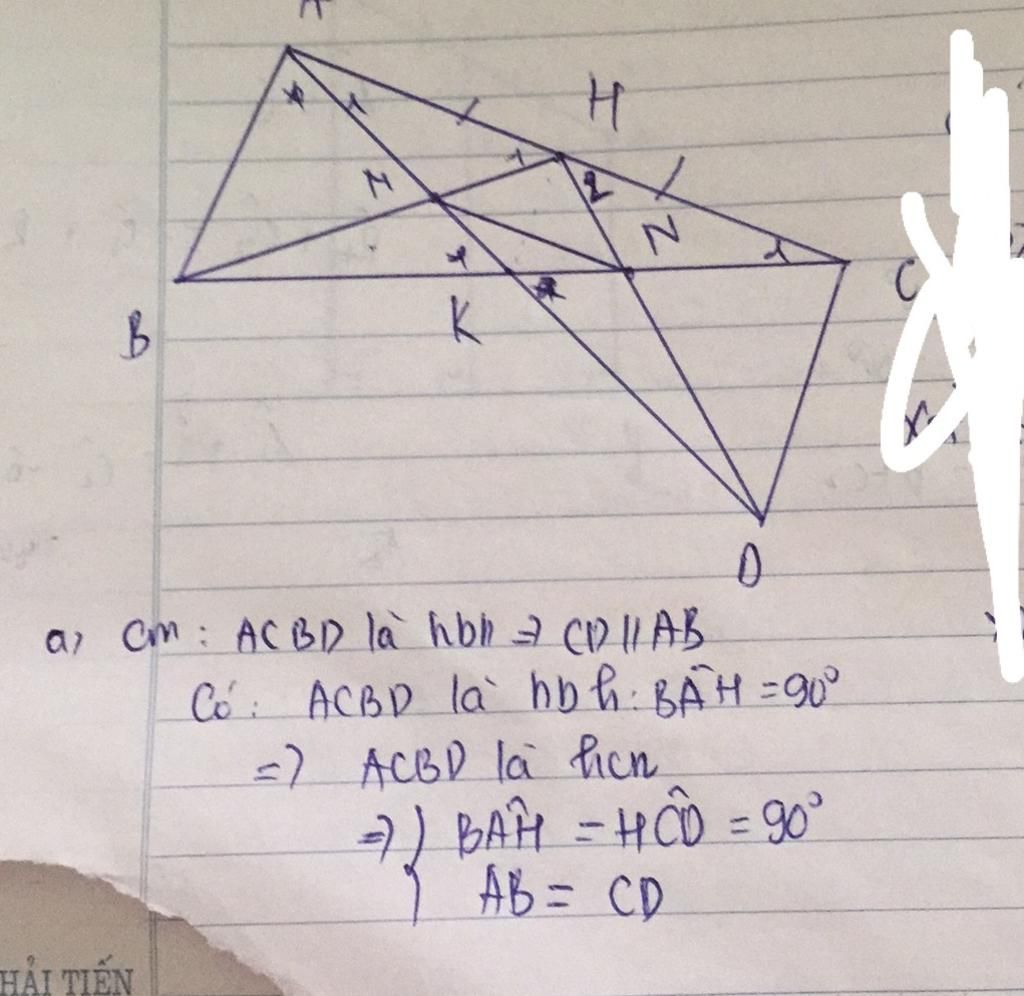 A
H
M
N
C
B
K
D
a, Cm: ACBD là hbh => CD // AB
Có: ACBD là hbh: BÂH = 90°
=> ACBD là hcn
=> { BÂH = HĈD = 90°
AB = CD
HẢI TIẾN